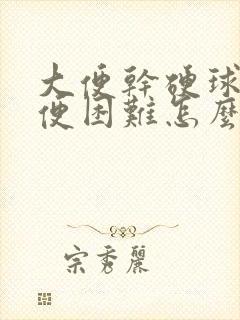 大便幹硬球
便困難怎麼
宗秀麗